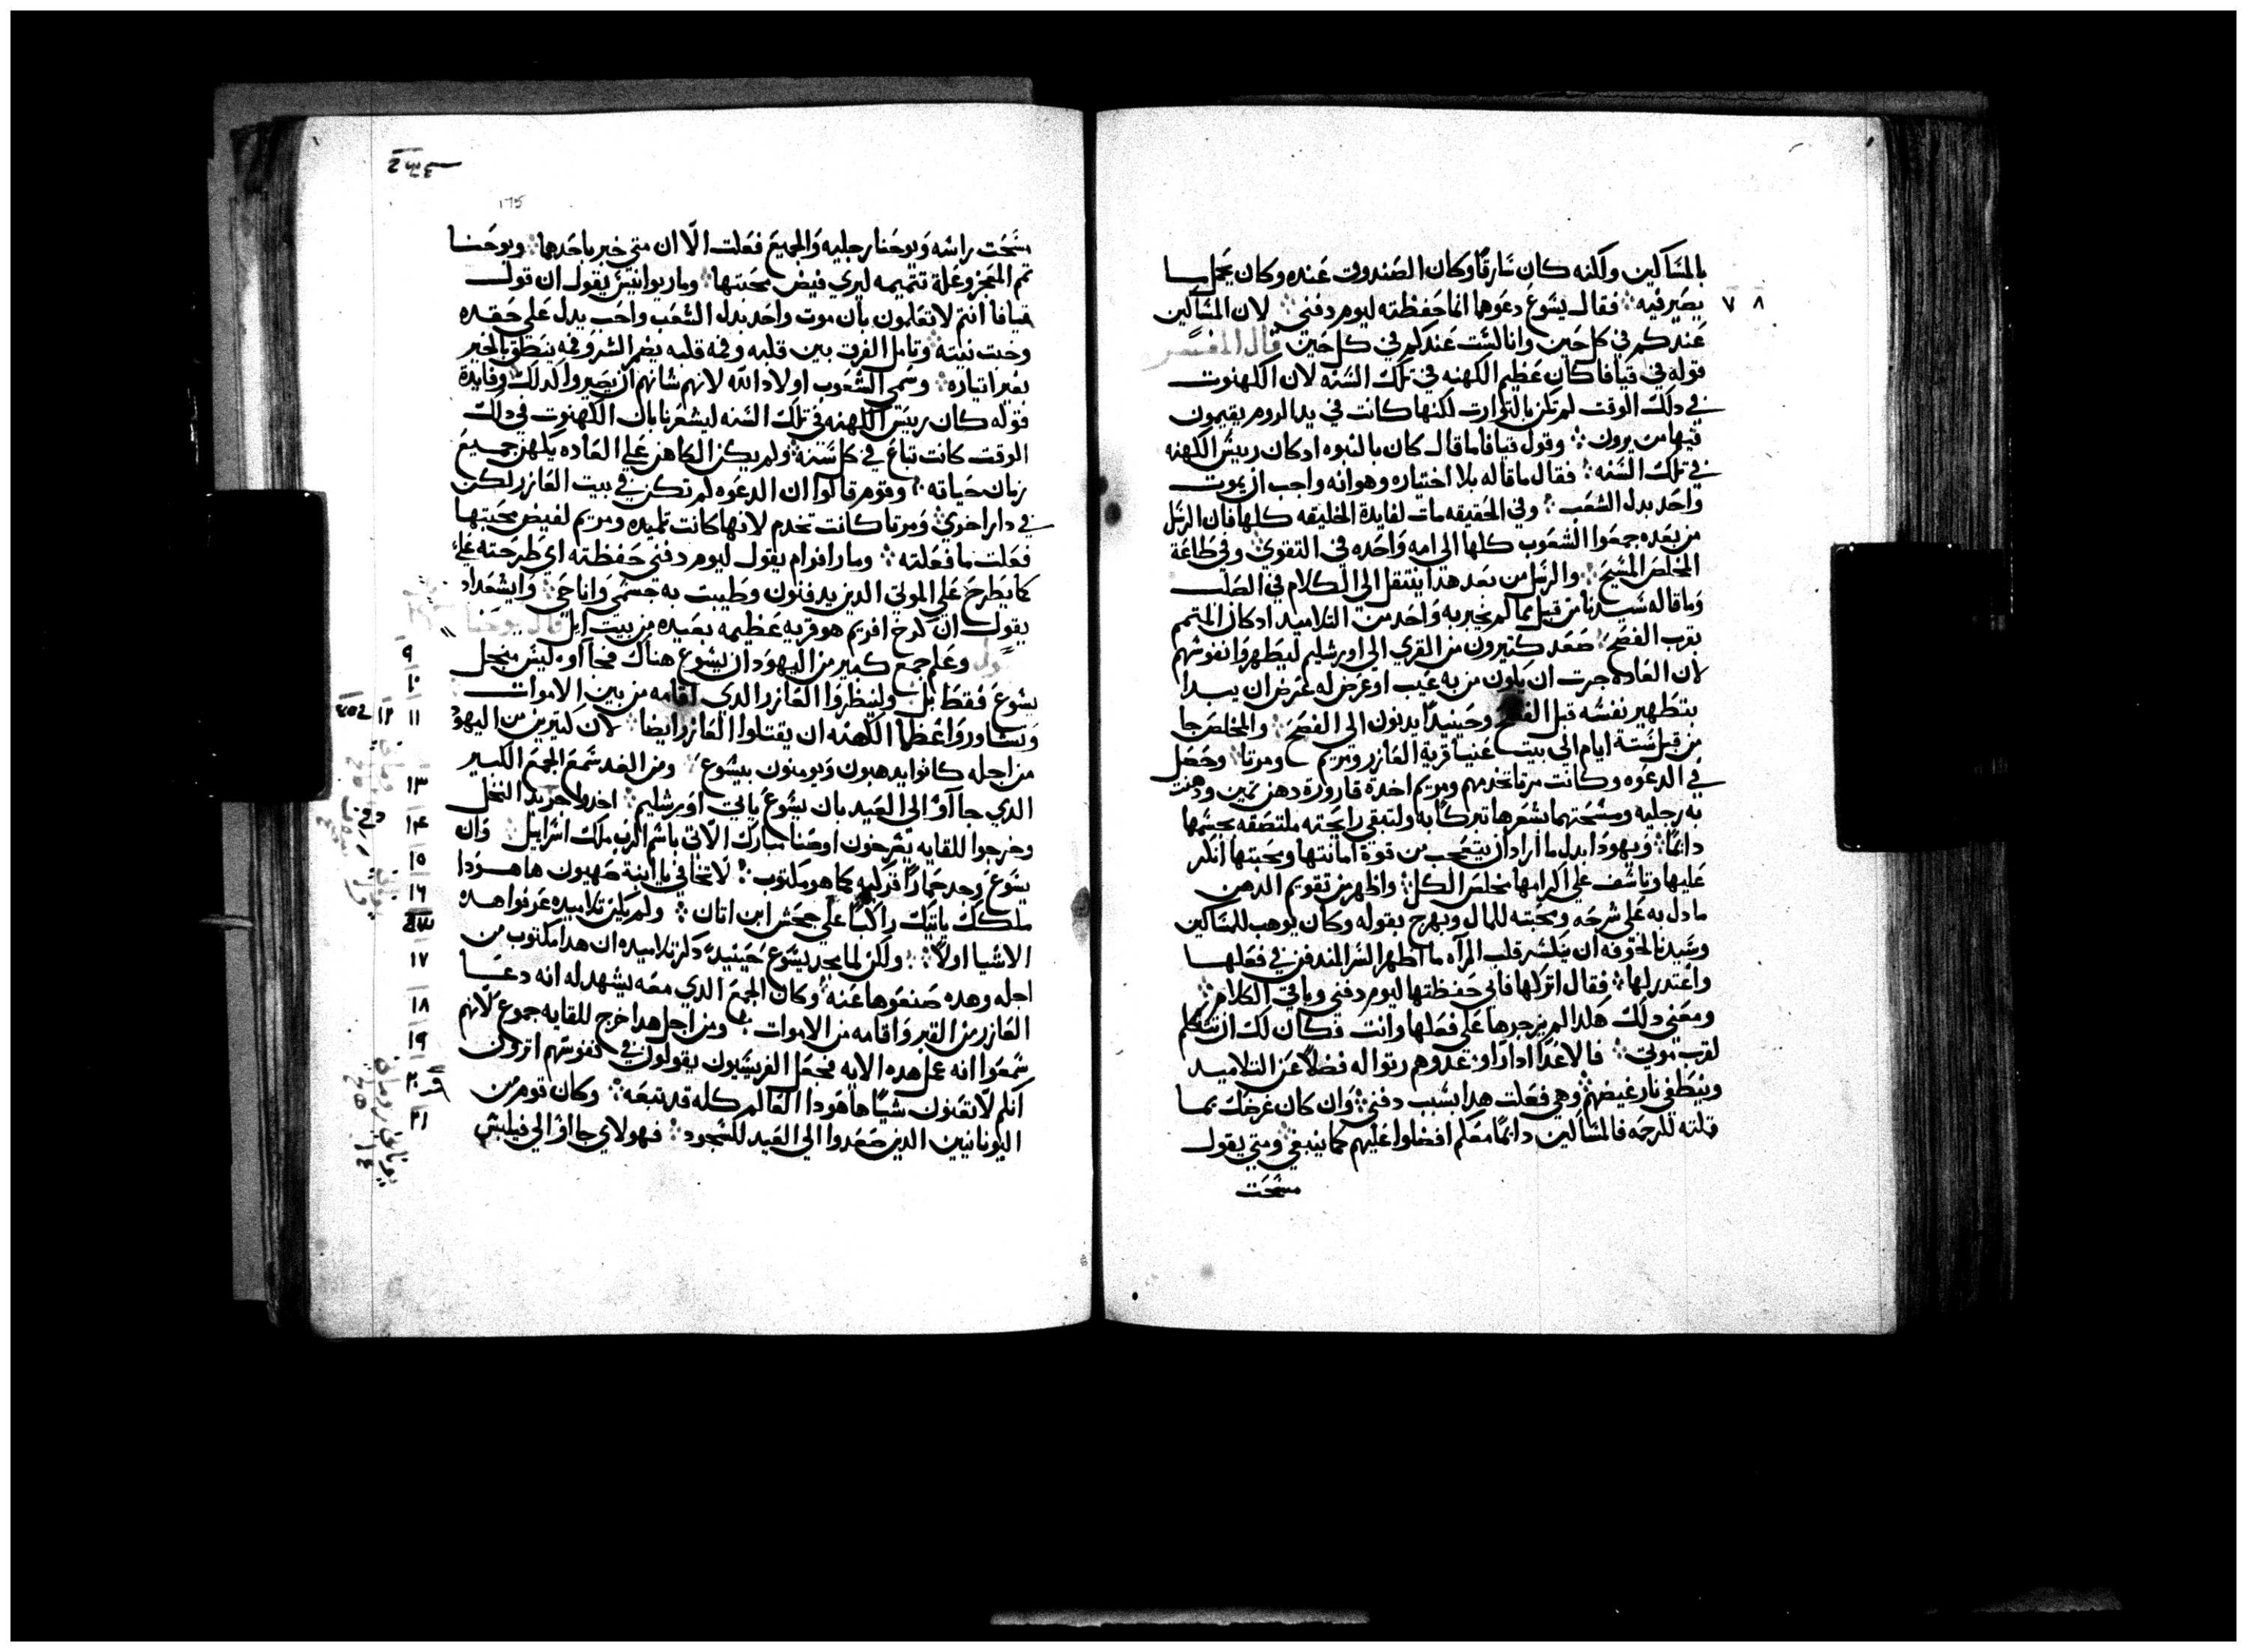 بالمساكين ولكنه كان سارقا وكان الصندوق عنده وكان يحمل ما
٧ ٨ يصير فيه فقال يسوع دعوها انما حفظته ليوم دفني لان المساكين
عندكم في كل حين وانا لست عندكم في كل حين قال المفسر
قوله في قيافا كان عظيم الكهنه في تلك السنه لان الكهنوت
في دلك الوقت لم تكن بالتوارت لكنها كانت في يد الروم يقيمون
فيها من يرون وقول قيافا ما قال كان بالنبوه اد كان رييس الكهنه
في تلك السنه فقال ما قاله بلا اختياره وهو انه واجب ان يموت
واحد بدل الشعب وفي الحقيقه مات لفايدة الخليقه كلها فان الرسل
من بعده جمعوا الشعوب كلها الى امه واحده في التقوي وفي طاعة
المخلص المسيح والرسل من بعد هدا ينتقل الى الكلام في الصلب
وما قاله سيدنا من قبل بما لم يخبر به واحد من التلاميد اد كان المتمم
بقرب الفصح صعد كتيرون من القري الى اورشليم ليطهروا نفوسهم
لان العاده جرت ان يكون من به عيب او عرض له عرض ان يبدا
بتطهير نفسه قبل الفصح وحينيدا يدنون الى الفصح والمخلص جا
من قبل ستة ايام الى بيت عنيا قرية العازر ومريم ومرتا وحصل
في الدعوه وكانت مرتا تخدمهم ومريم اخدة قارورة دهن تمين ودهنت
به رجليه ومسحتهما بشعرها تبركا به ولتبقي رايحته ملتصقه بجسمها
دايما ويهودا بدل ما اراد ان يتعجب من قوة امانتها ومحبتها انكر
عليها وتاسف على اكرامها مخلص الكل واظهر من تقويم الدهن
ما دل به على شرهه ومحبته للمال وبهرج بقوله وكان يوهب للمساكين
وسيدنا لخوفه ان يكسر قلب المراه ما اظهر السر المندفن في فعلها
واعتدر لها فقال اتركها فاني حفظتها ليوم دفني وباقي الكلام
ومعني دلك هكدا لم يزجرها على فعلها وانت فكان لك ان تتكلم
لقرب موتي فالاعدا ادا راو عدوهم رتوا له فضلا عن التلاميد
وينطفي نار غيضهم وهي فعلت هدا بسبب دفني وان كان غرضك بما
قلته للرحمه فالمساكين دايما معكم افضلوا عليهم كما ينبغي ومتي يقول
مسحت
175
مسحت راسه ويوحنا رجليه والجميع فعلت الا ان متي خبر باحدهما ويوحنا
تم المعجز وعلة تتميمه ليري فيض محبتها ومار يوانيس يقول ان قول
قيافا انتم لا تعلمون بان موت واحد بدل الشعب واجب يدل على حقده
وخبت نيته وتامل الفرق بين قلبه وفمه قلبه يضمر الشر وفمه ينطق بالخير
بغير اتياره وسمي الشعوب اولاد الله لانهم شانهم ان يصيروا كدلك وفايدة
قوله كان رييس الكهنه في تلك السنه ليشعرنا بان الكهنوت في دلك
الوقت كانت تباع في كل سنه ولم يكن الكاهن على العاده يكهن جميع
زمان حياته وقوم قالوا ان الدعوه لم تكن في بيت العازر لكن
في دار اخري ومرتا كانت تخدم لانها كانت تلميده ومريم لفيض محبتها
فعلت ما فعلته ومار افرام يقول ليوم دفني حفظته اي طرحته علي
كما يطرح علي الموتي الدين يدفنون وطيبت به جسمي وانا حي وايشعداد
يقول ان كرخ افريم هو قريه عظيمه بعيده من بيت ايل قال يوحنا
٩ وعلم جمع كتير من اليهود ان يسوع هناك فجااو ليس من اجل
١٠ يسوع فقط بل ولينظروا العازر الدي اقامه من بين الاموات
١١ ١٢ وتشاوروا عظما الكهنه ان يقتلوا العازر ايضا لان كتيرين من اليهود
من اجله كانوا يدهبون ويومنون بيسوع ومن الغد سمع الجمع الكبير
١٣ الدي جااو الى العيد بان يسوع ياتي اورشليم اخدوا جريد النخل
١٤ وخرجوا للقايه يصرخون اوصنا مبارك الاتي باسم الرب ملك اسراييل وان
١٥ يسوع وجد حمارا فركبه كما هو مكتوب لا تخافي يا ابنة صهيون ها هودا
١٦ ملكك ياتيك راكبا علي جحش ابن اتان ولم يكن تلاميده عرفوا هده
الاشيا اولا ولكن لما مجد يسوع حينيد دكر تلاميده ان هدا مكتوب من
١٧ اجله وهده صنعوها عنه وكان الجمع الدي معه يشهد له انه دعا
١٨ العازر من القبر واقامه من الاموات ومن اجل هدا خرج للقايه جموع لانهم
١٩ سمعوا انه عمل هده الايه فجعل الفريسيون يقولون في نفوسهم اترون
٢٠ انكم لا تغنون شيا ها هودا العالم كله قد تبعه وكان قوم من
٢١ اليونانيين الدين صعدوا الي العيد للسجود فهولاي جااو الي فيلبس